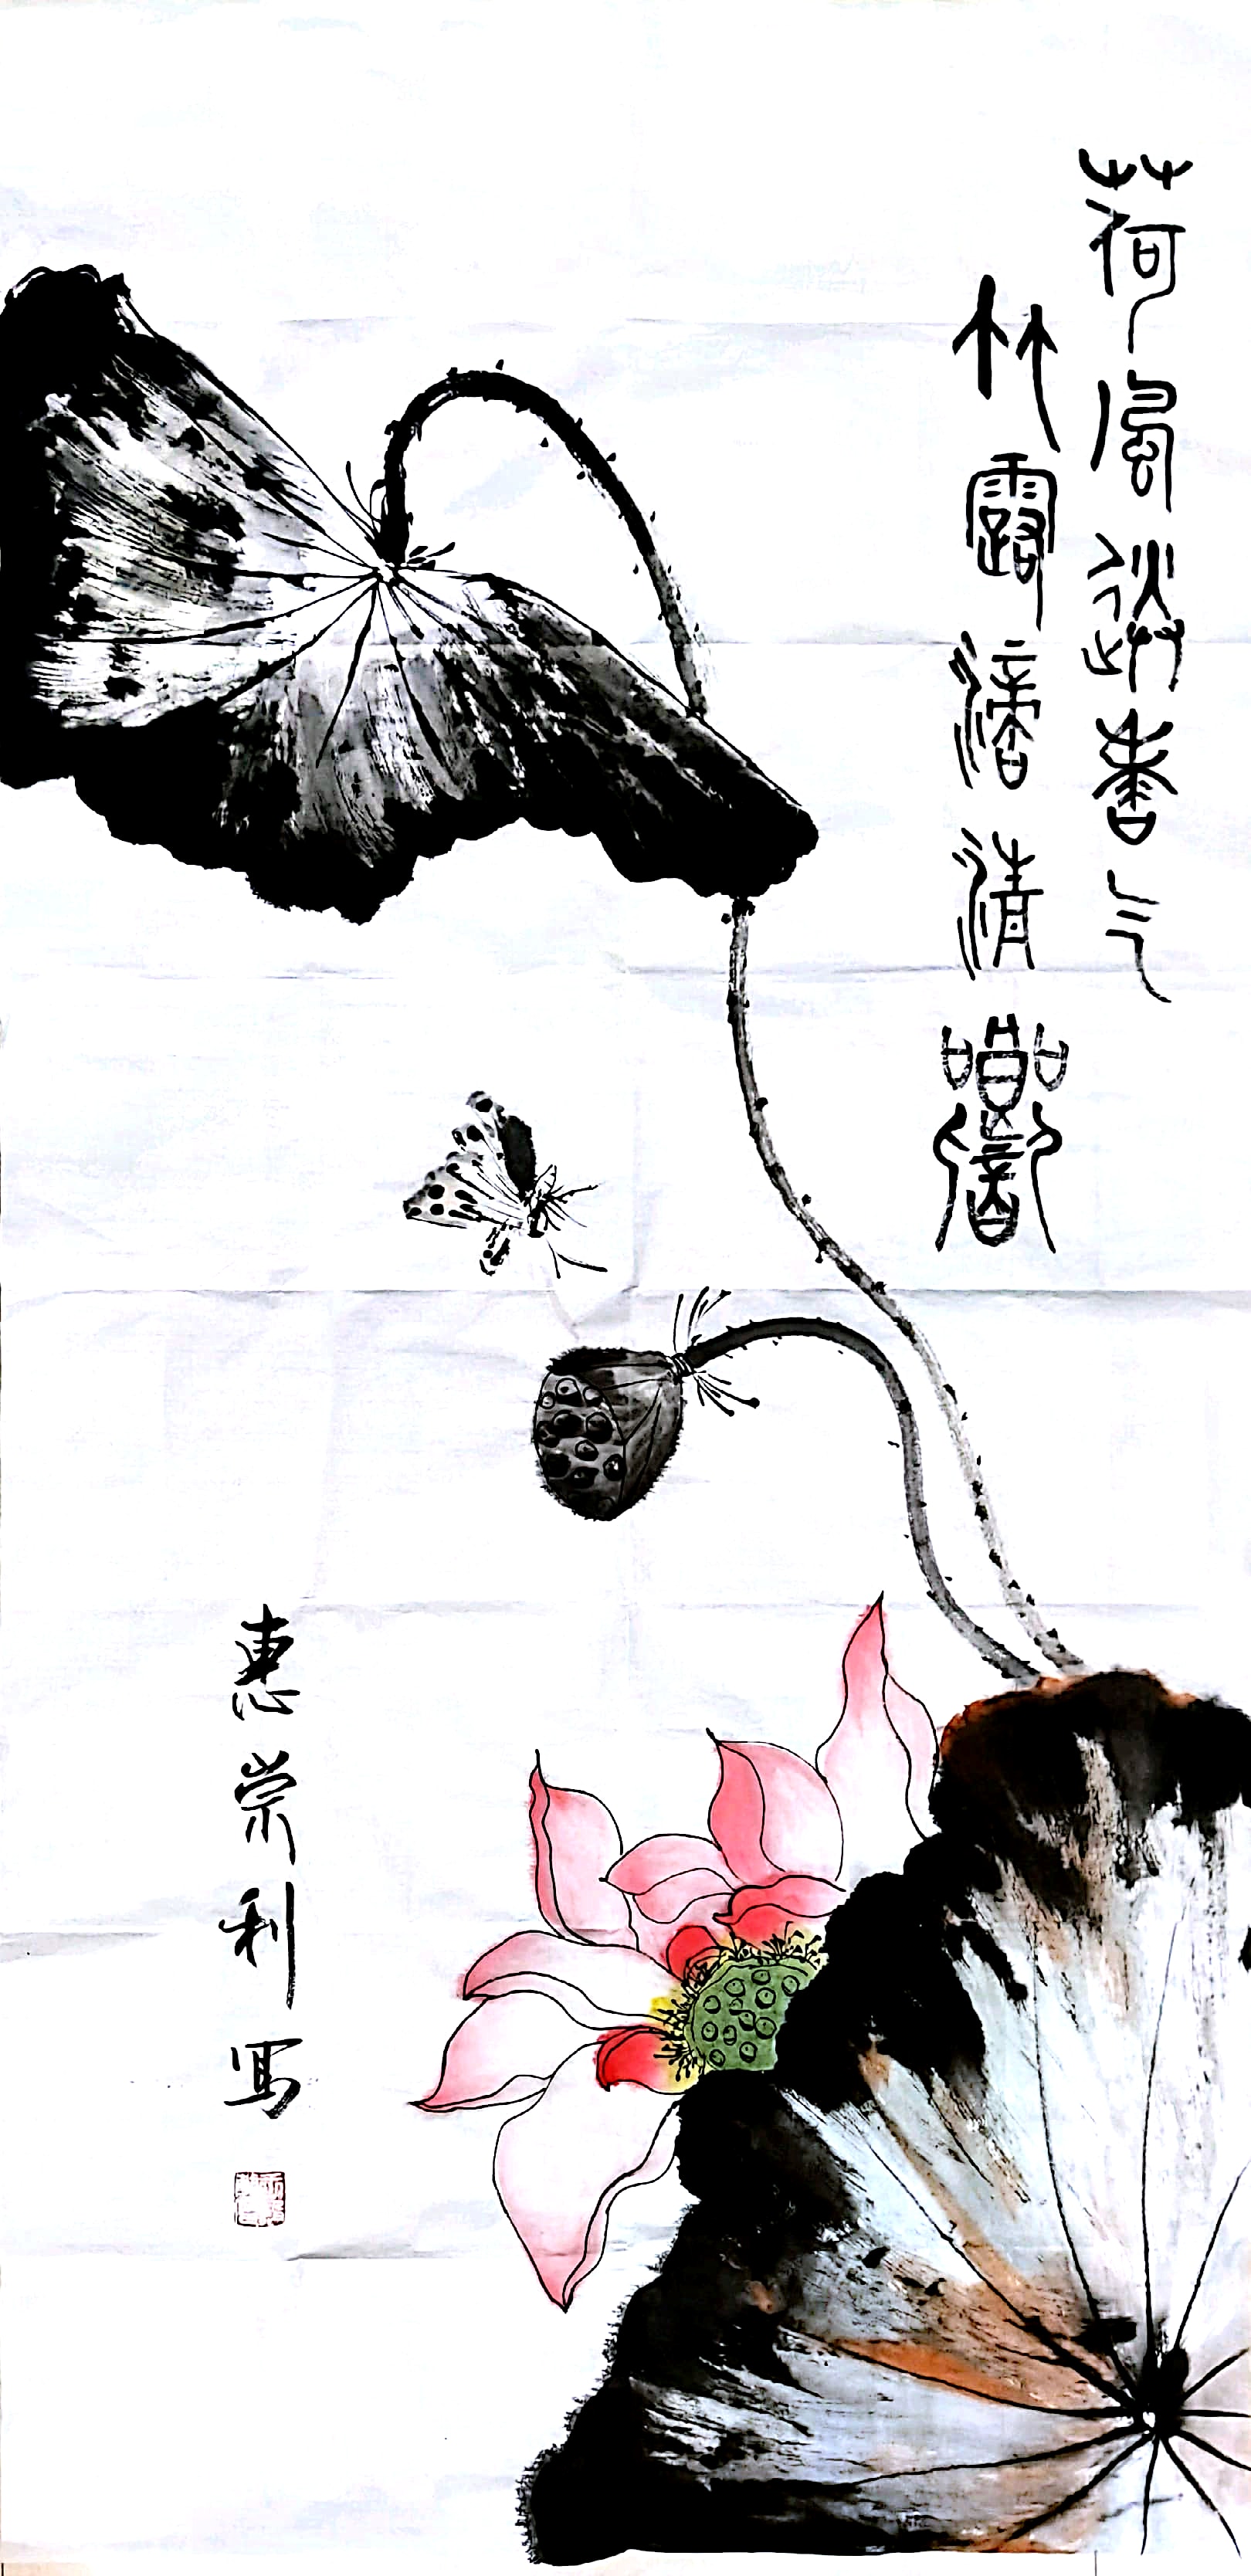 荷風送香气
竹露滴清響
惠崇利写